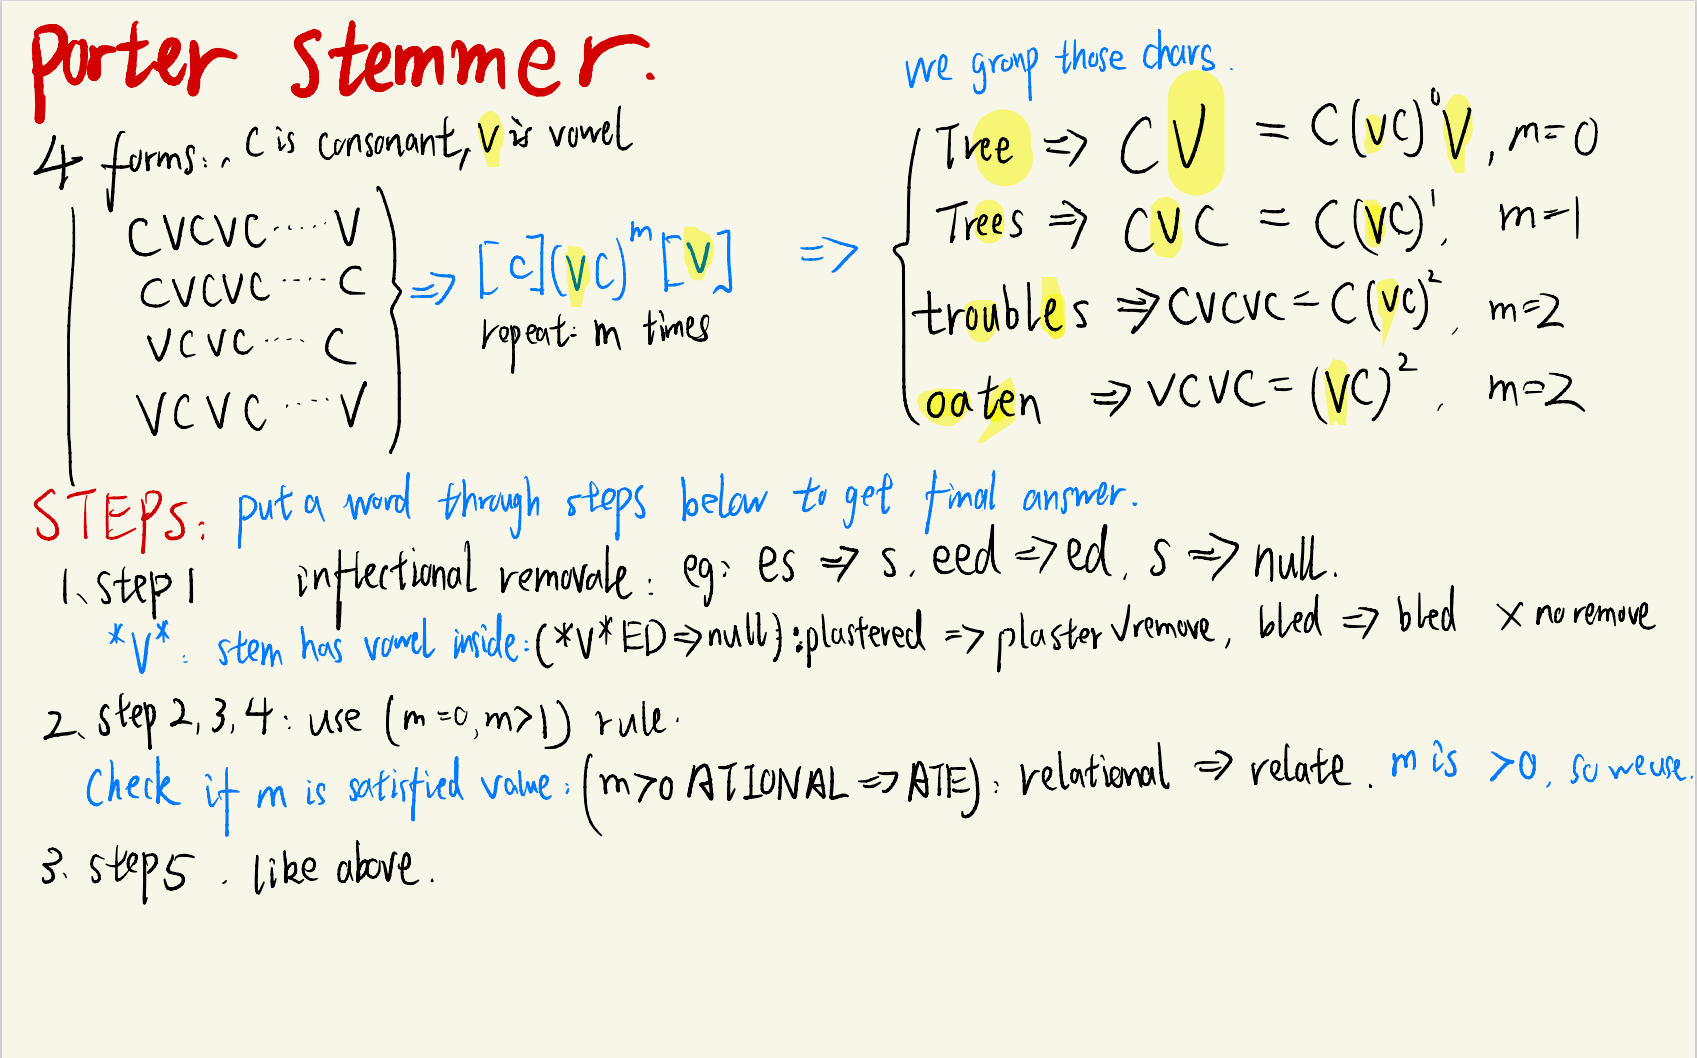 Porter Stemmer.
4 forms: C is consonant, V is vowel
CVCVC ..... V
CVCVC .... C
VCVC .... C
VCVC .... V
=> [C](VC)^m[V] =>
repeat: m times
we group those chars.
Tree => CV = C(VC)^0 V, m=0
Trees => CVC = C(VC)^1, m=1
troubles => CVCVC = C(VC)^2, m=2
oaten => VCVC = (VC)^2, m=2
STEPS: put a word through steps below to get final answer.
1、step 1 inflectional removale: eg: es => s, eed => ed, s => null.
*V*: stem has vowel inside: (*V*ED => null): plastered => plaster √remove, bled => bled × no remove
2、step 2,3,4: use (m=0, m>1) rule.
Check if m is satisfied value: (m>0 ATIONAL => ATE): relational => relate. m is >0, so we use.
3. step5. like above.